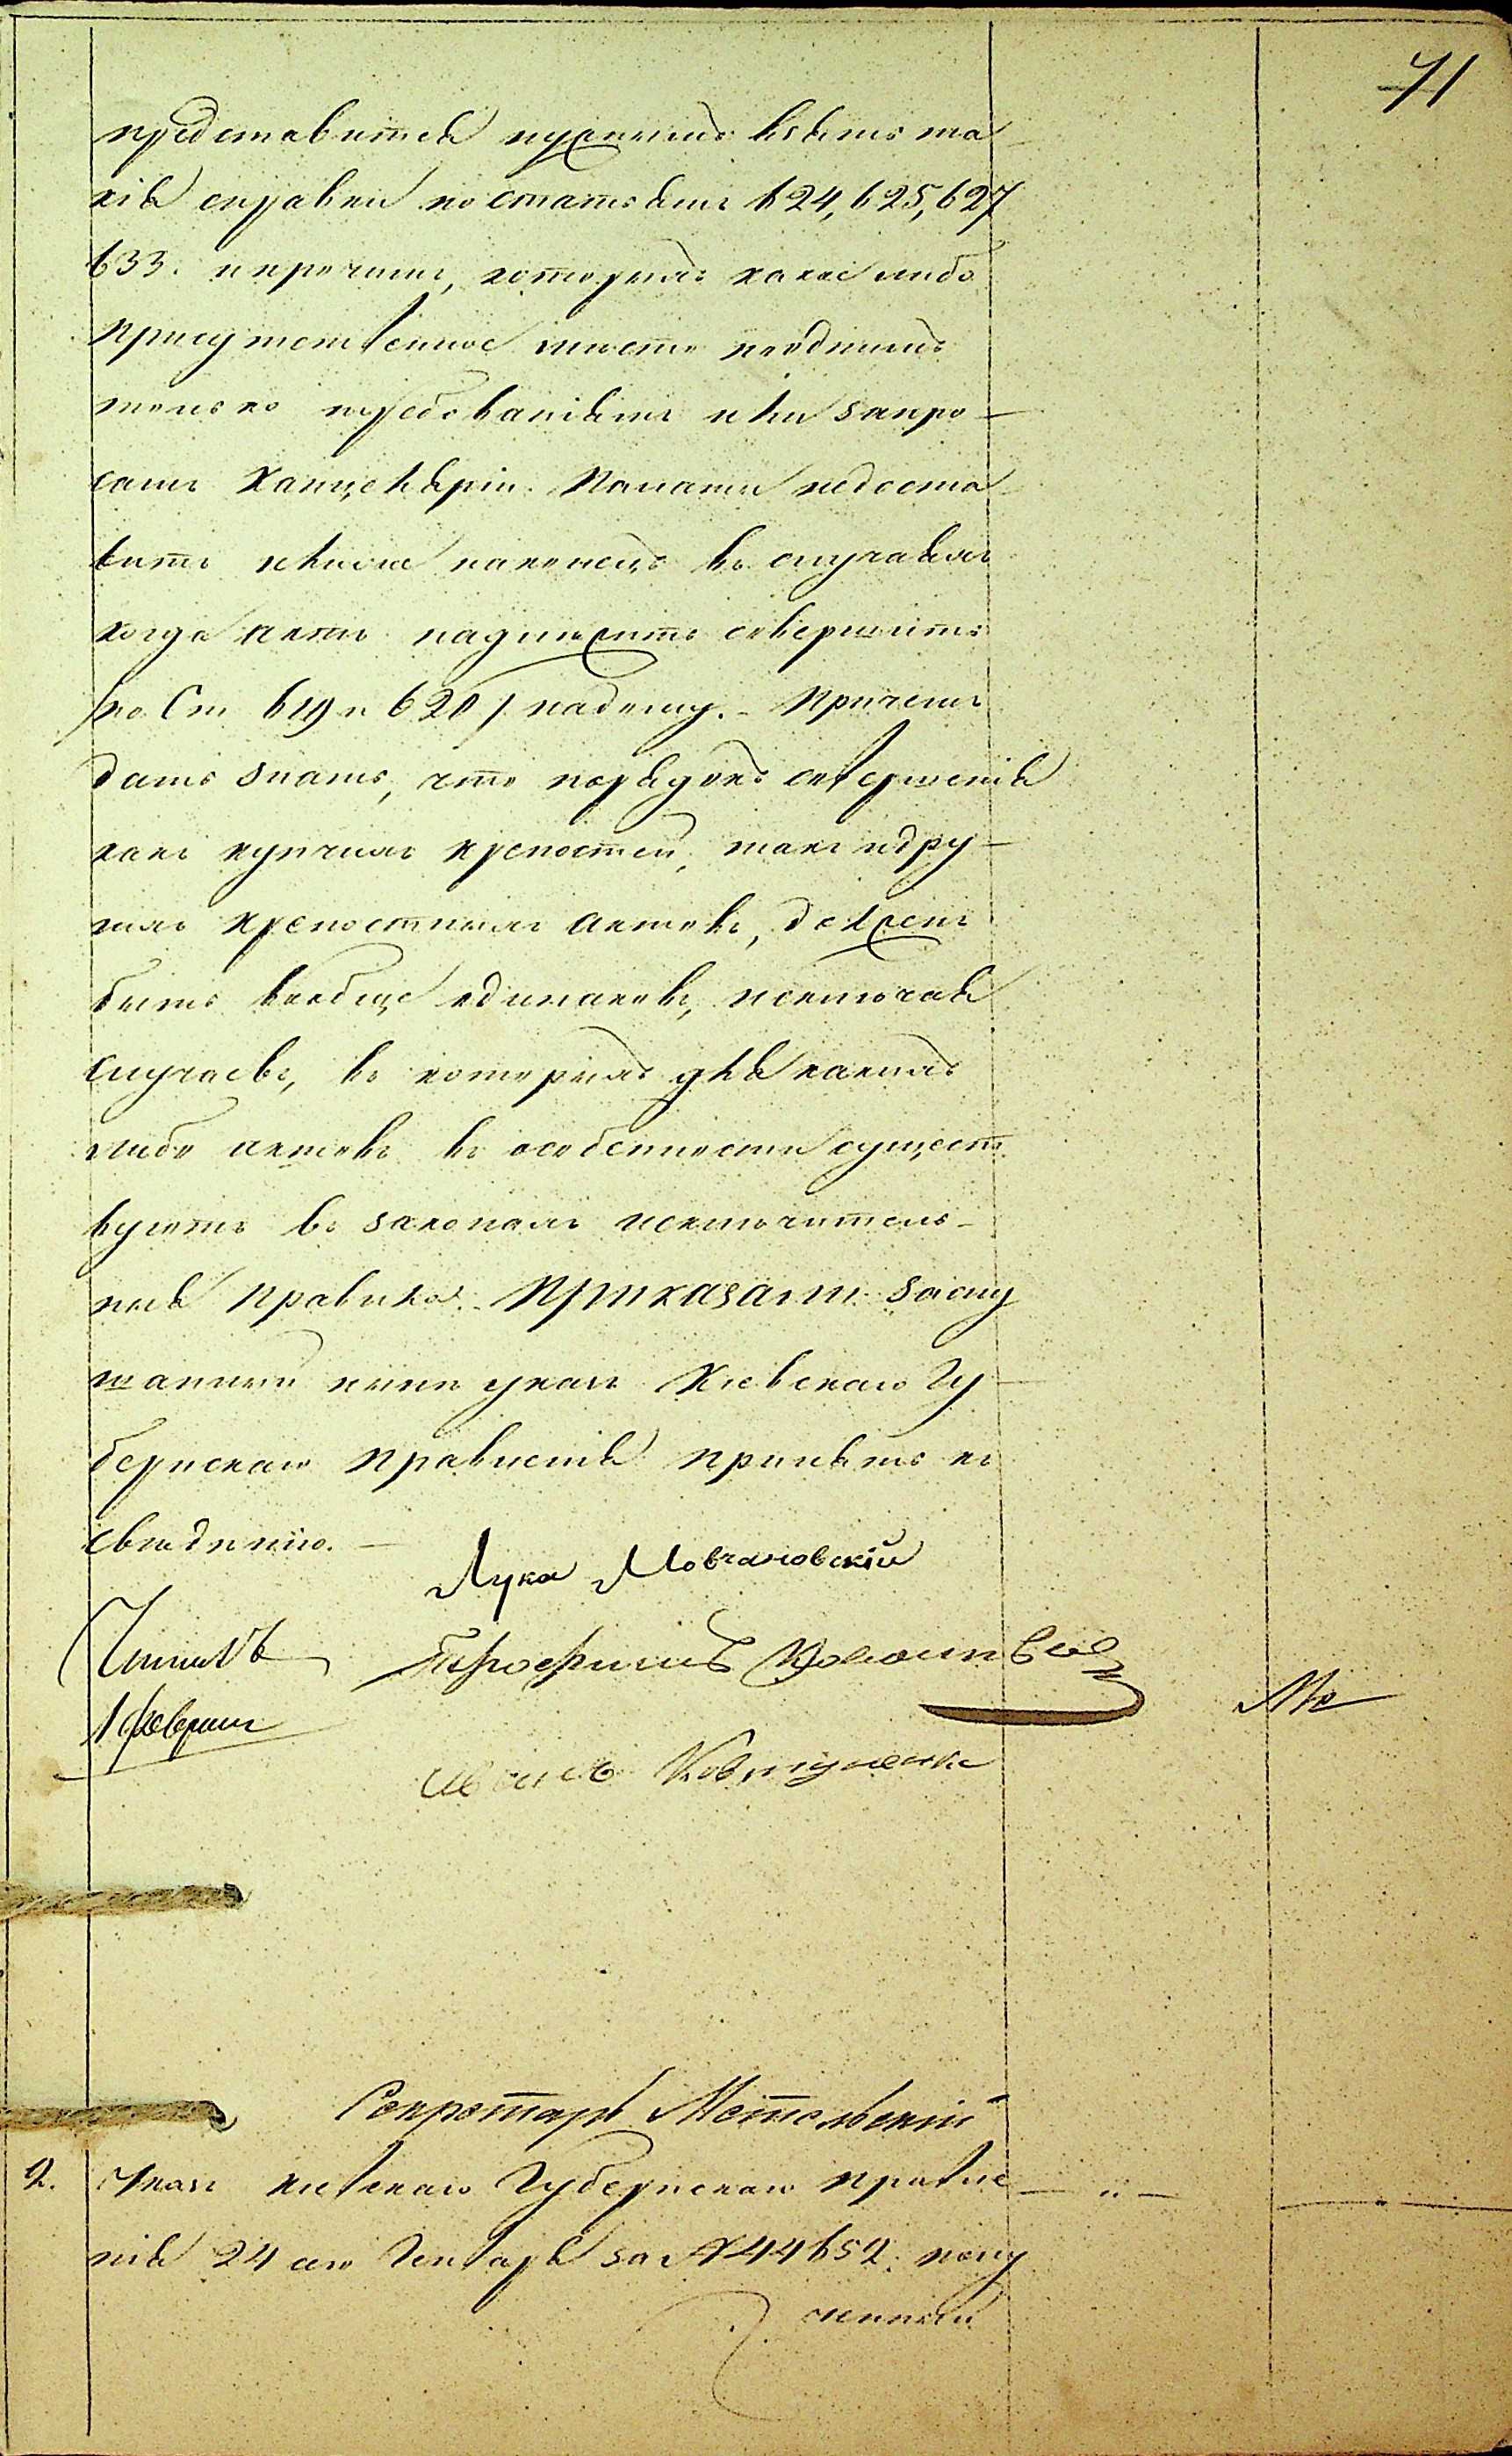 71
представится нужнымъ взять та
кія справки по статьямъ 624, 625, 627
633. и прочимъ, которыхъ какое либо
присутственное место поодними
только требованіямъ или запро-
самъ Канцеляріи Палаты недоста
витъ илиже наконецъ въ случаяхъ
когда актъ надлежитъ совершить
/по Ст 619 и 620/ надому. - Причемъ
дать знать, что порядокъ совершенія
какъ купчихъ крепостей, такъ идру-
гихъ крепостныхъ актовъ, долженъ
быть вообще одинаковъ, исключая
случаевъ, въ которыхъ для какихъ
либо актовъ въ особенности сущест
вуютъ въ законахъ исключитель-
ныя правила. - Приказали: заслу
шанный ныне указъ Киевскаго Гу-
бернскаго правленія принять къ
сведенію. -
Лука Мовчановскій
Читалъ
1 февраля
Иванъ Ковтуненко
Секретарь
2. Указъ Киевскаго Губернскаго правле
нія 24 сего Генваря за № 44652. полу
ченный